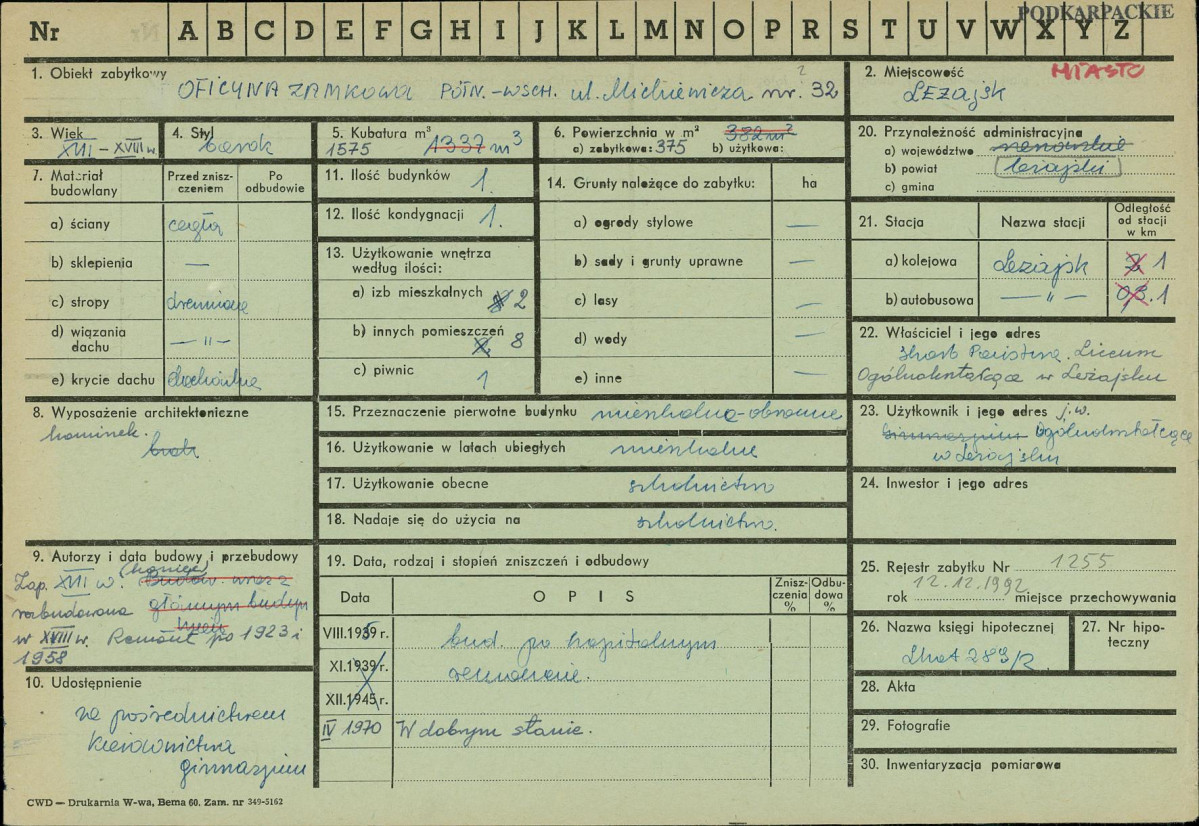 PODKARPACKIE
Nr A B C D E F G H I J K L M N O P R S T U V W X Y Z
1. Obiekt zabytkowy OFICYNA ZAMKOWA PÓŁN.-WSCH. ul. Mickiewicza nr. 32
?
2. Miejscowość MIASTO
LEŻAJSK
3. Wiek
XVII - XVIII w.
4. Styl
barok
5. Kubatura m³
1575 1337 m³
6. Powierzchnia w m² 382 m²
a) zabytkowa: 375 b) użytkowa:
20. Przynależność administracyjna
a) województwo rzeszowskie
b) powiat leżajski
c) gmina
7. Materiał budowlany
Przed zniszczeniem
Po odbudowie
a) ściany cegła
b) sklepienia —
c) stropy drewniane
d) wiązania dachu — " —
e) krycie dachu dachówka
11. Ilość budynków 1.
12. Ilość kondygnacji 1.
13. Użytkowanie wnętrza według ilości:
a) izb mieszkalnych 2
b) innych pomieszczeń 8
c) piwnic 1
14. Grunty należące do zabytku: ha
a) ogrody stylowe —
b) sady i grunty uprawne —
c) lasy —
d) wody —
e) inne —
21. Stacja Nazwa stacji Odległość od stacji w km
a) kolejowa Leżajsk 2 1
b) autobusowa — " — 0,8. 1
22. Właściciel i jego adres
Skarb Państwa. Liceum
Ogólnokształcące w Leżajsku
8. Wyposażenie architektoniczne
kominek.
brak
15. Przeznaczenie pierwotne budynku mieszkalno-obronne
16. Użytkowanie w latach ubiegłych mieszkalne
17. Użytkowanie obecne szkolnictwo
18. Nadaje się do użycia na szkolnictwo.
23. Użytkownik i jego adres j.w.
Gimnazjum Ogólnokształcące
w Leżajsku
24. Inwestor i jego adres
9. Autorzy i data budowy i przebudowy
Zap. XVII w. (koniec) Budow. wraz z
rozbudowana głównym budyn
kiem
w XVIII w. Remont po 1923 i
1958
10. Udostępnienie
za pośrednictwem
kierownictwa
gimnazjum
19. Data, rodzaj i stopień zniszczeń i odbudowy
Data OPIS Zniszczenia % Odbudowa %
VIII.1939 r. bud. po kapitalnym
XI.1939 r. remoncie.
XII.1945 r.
IV 1970 W dobrym stanie.
25. Rejestr zabytku Nr 1255
rok 12.12.1992 miejsce przechowywania
26. Nazwa księgi hipotecznej
Lhot 289/2
27. Nr hipoteczny
28. Akta
29. Fotografie
30. Inwentaryzacja pomiarowa
CWD — Drukarnia W-wa, Bema 60. Zam. nr 349-5162